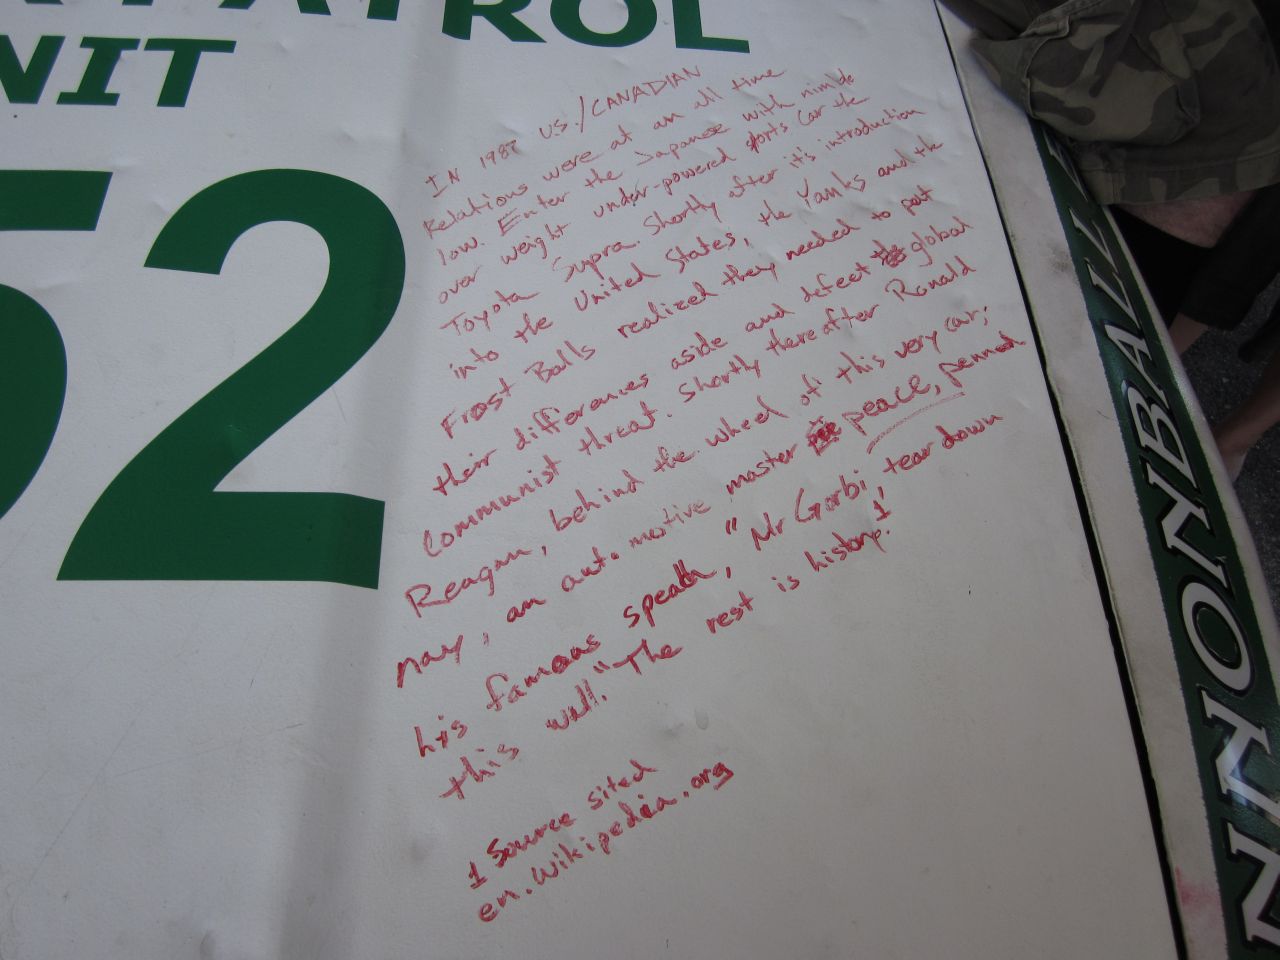 PATROL
NIT
52
IN 1987 US./CANADIAN
Relations were at an all time
low. Enter the Japanese with nimble
over weight under-powered sports car the
Toyota Supra. Shortly after it's introduction
into the United States, the Yanks and the
Frost Balls realized they needed to put
their differences aside and defeat global
Communist threat. Shortly thereafter Ronald
Reagan, behind the wheel of this very car,
nay, an automotive master peace, penned
his famous speach, "Mr Gorbi, tear down
this wall." The rest is history.1
1 Source sited
en.wikipedia.org
NNONBALL